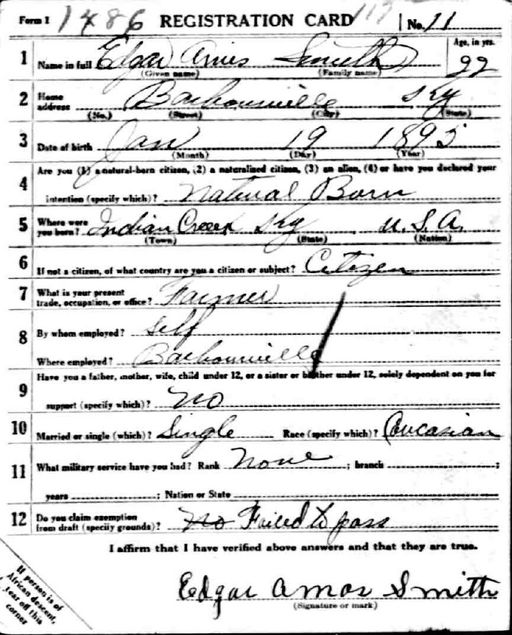 Form 1 1486 REGISTRATION CARD 117 No. 11
1 Name in full Edgar Amis Smith Age, in yrs. 22
(Given name) (Family name)
2 Home address Barbourville Ky
(No.) (Street) (City) (State)
3 Date of birth Jan 19 1895
(Month) (Day) (Year)
Are you (1) a natural-born citizen, (2) a naturalized citizen, (3) an alien, (4) or have you declared your
4 intention (specify which)? Natural Born
5 Where were you born? Indian Creek Ky U.S.A.
(Town) (State) (Nation)
6 If not a citizen, of what country are you a citizen or subject? Citizen
7 What is your present trade, occupation, or office? Farmer
8 By whom employed? Self
Where employed? Barbourville
9 Have you a father, mother, wife, child under 12, or a sister or brother under 12, solely dependent on you for
support (specify which)? No
10 Married or single (which)? Single Race (specify which)? Caucasian
11 What military service have you had? Rank None ; branch ;
years ; Nation or State
12 Do you claim exemption from draft (specify grounds)? No Failed to pass
I affirm that I have verified above answers and that they are true.
If person is of African descent, tear off this corner
Edgar Amos Smith
(Signature or mark)